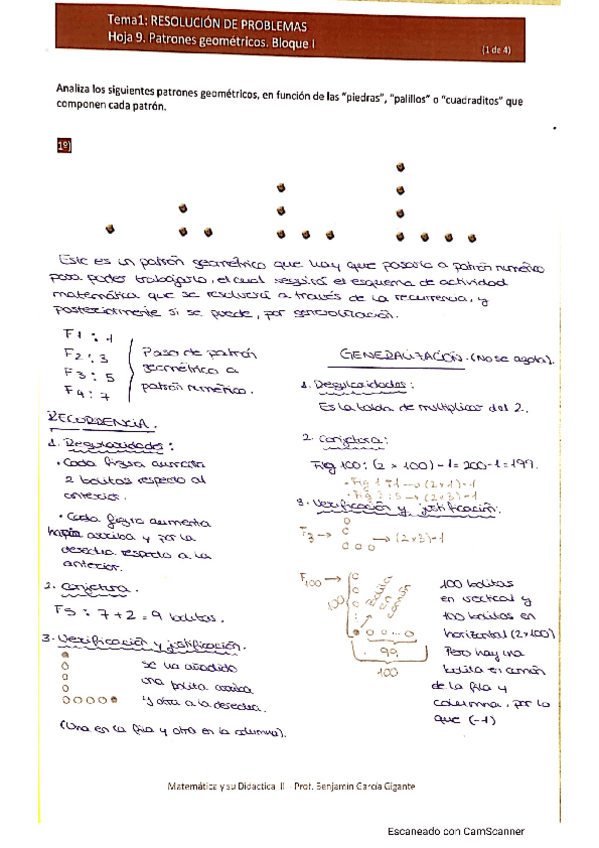 Tema1: RESOLUCIÓN DE PROBLEMAS
Hoja 9. Patrones geométricos. Bloque I
(1 de 4)
Analiza los siguientes patrones geométricos, en función de las "piedras", "palillos" o "cuadraditos" que
componen cada patrón.
1º)
Este es un patrón geométrico que hay que pasarlo a patrón numérico
para poder trabajarlo, el cual seguirá el esquema de actividad
matemática que se resolverá a través de la recurrencia, y
posteriormente si se puede, por generalización.
F1 : 1
F2 : 3
F3 : 5
F4 : 7
Paso de patrón
geométrico a
patrón numérico.
RECURRENCIA.
1. Regularidades :
· Cada figura aumenta
2 bolitas respecto al
anterior.
· Cada figura aumenta
hacia arriba y por la
derecha respecto a la
anterior.
2. Conjetura.
F5 : 7+2 = 9 bolitas.
3. Verificación y justificación.
se ha añadido
una bolita arriba
y otra a la derecha.
(Una en la fila y otra en la columna).
GENERALIZACIÓN. (No se agota).
1. Regularidades :
Es la tabla de multiplicar del 2.
2. Conjetura :
Fig 100: (2 x 100) -1 = 200-1 = 199.
- Fig 1 : 1 → (2x1)-1
- Fig 3 : 5 → (2x3)-1
3. Verificación y justificación.
F3 → → (2x3)-1
F100 →
100
Bolita
en
común
99
100
100 bolitas
en vertical y
100 bolitas en
horizontal (2x100)
Pero hay una
bolita en común
de la fila y
columna, por lo
que (-1)
Matemática y su Didactica II - Prof. Benjamín García Gigante
Escaneado con CamScanner